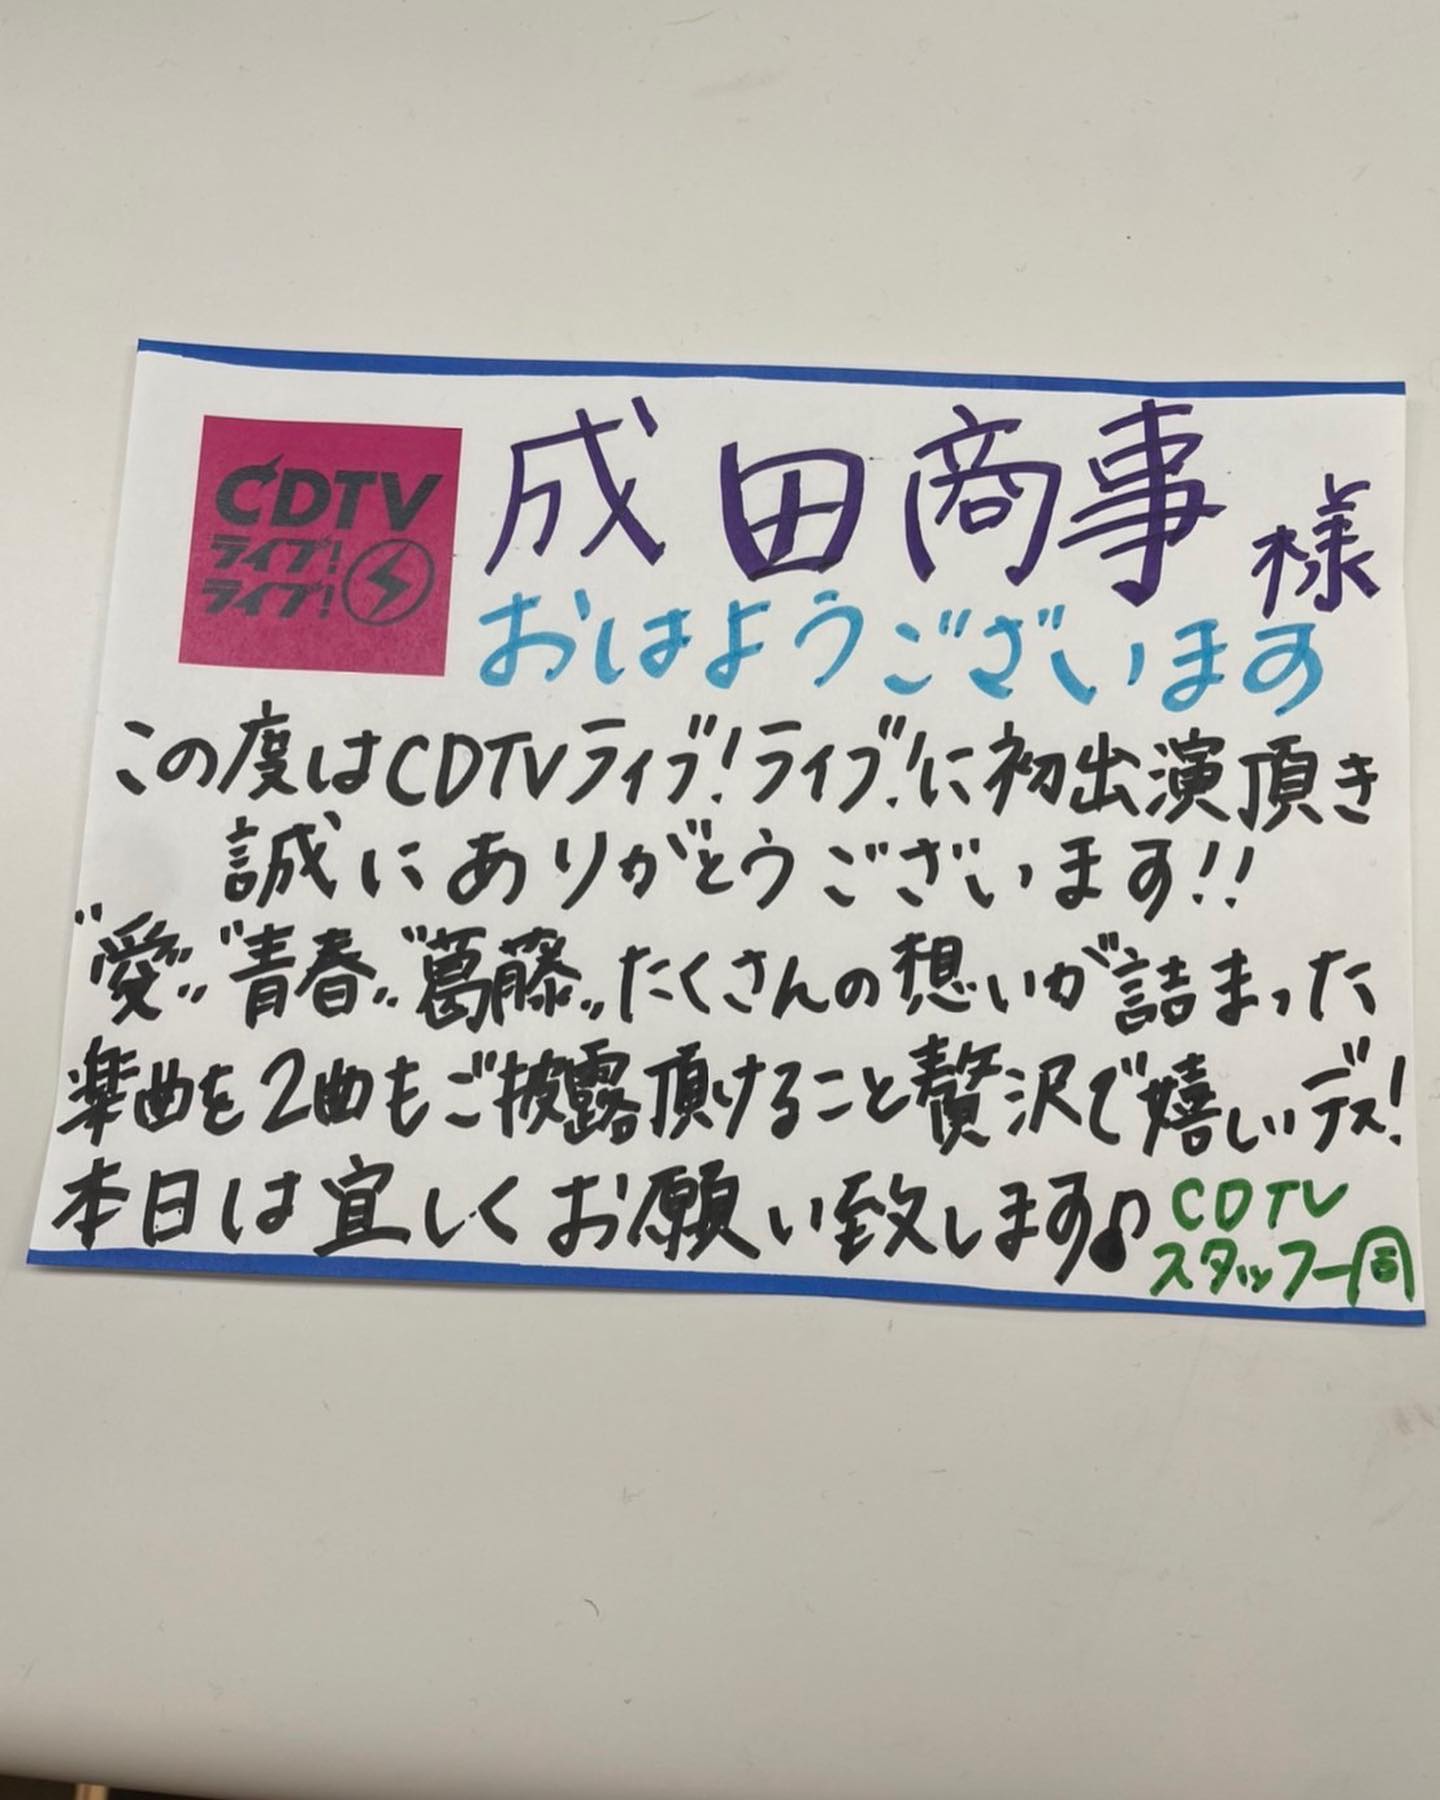 CDTV
ライブ!
ライブ!
成田商事様
おはようございます
この度はCDTVライブ!ライブ!に初出演頂き
誠にありがとうございます!!
"愛""青春""葛藤"たくさんの想いが詰まった
楽曲を2曲もご披露頂けること贅沢で嬉しいデス!
本日は宜しくお願い致します♪
CDTV
スタッフ一同